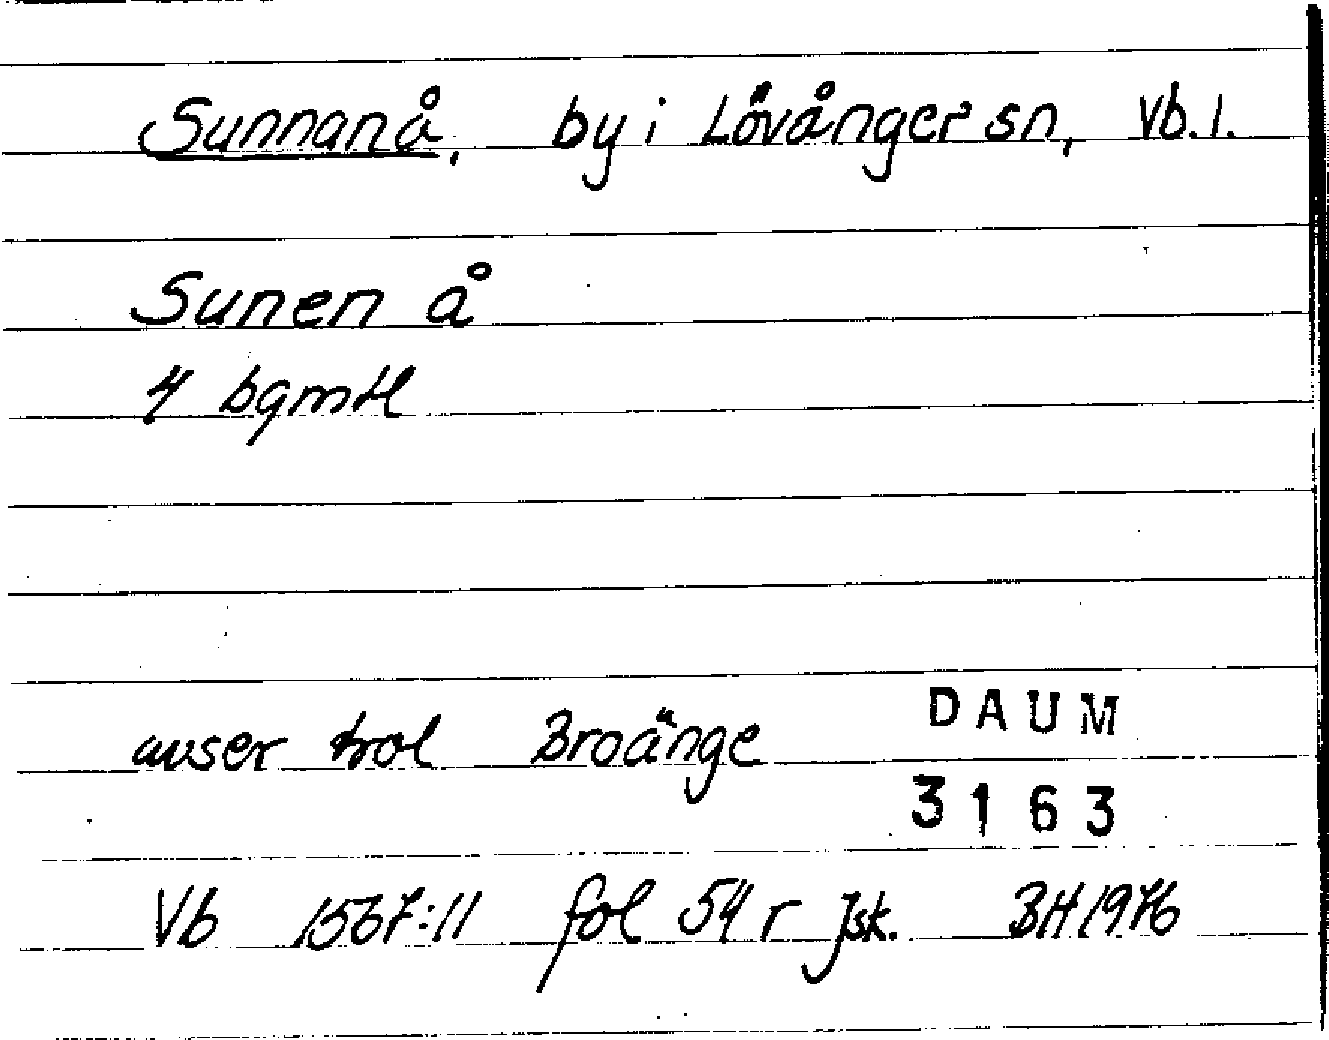 Sunnanå, by i Lövånger sn, Vb. l.
Sunen å
4 bgmtl
avser trol Broänge
DAUM
3163
Vb 1567:11 fol 54 r Jsk. BH 1976